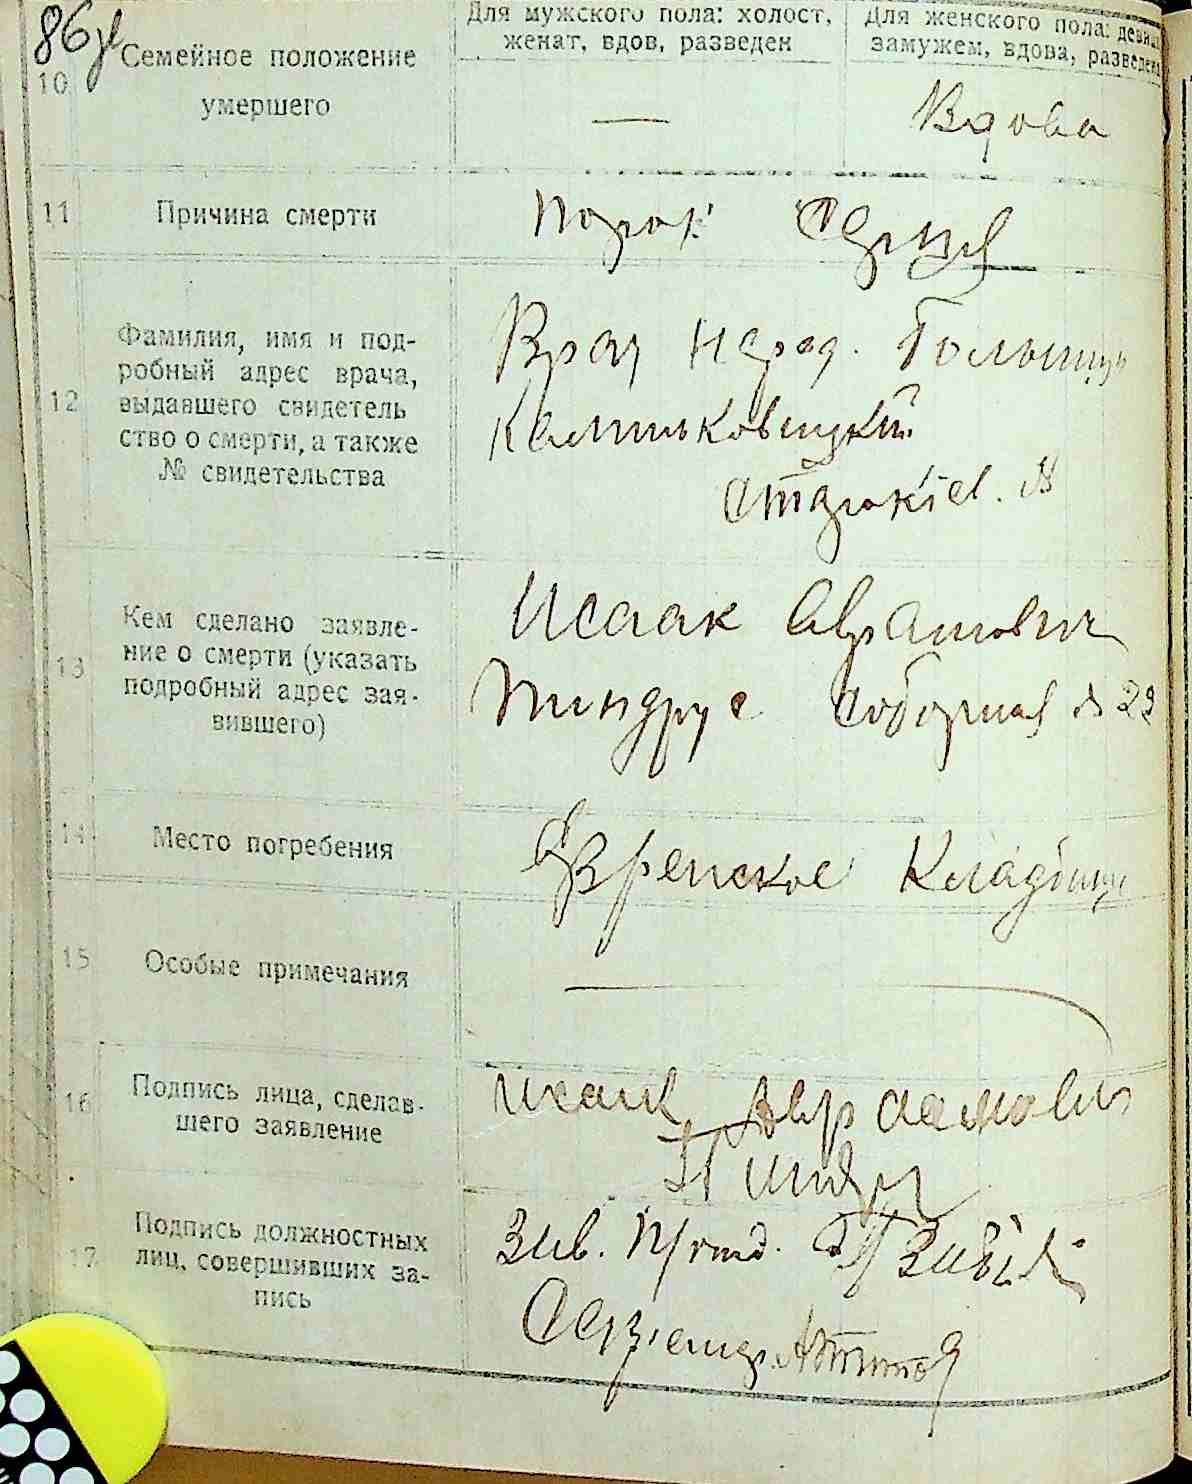 86
10 Семейное положение умершего
Для мужского пола: холост, женат, вдов, разведен
Для женского пола: девица, замужем, вдова, разведена
—
Вдова
11 Причина смерти
порок
12 Фамилия, имя и под-
робный адрес врача,
выдавшего свидетель
ство о смерти, а также
№ свидетельства
Врач
13 Кем сделано заявле-
ние о смерти (указать
подробный адрес зая-
вившего)
Исаак Аврамович
Пиндрус Соборная №
14 Место погребения
Еврейское Кладбище
15 Особые примечания
16 Подпись лица, сделав-
шего заявление
Исаак Авраамович
17 Подпись должностных
лиц, совершивших за-
пись
Зав.